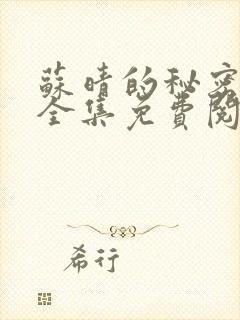 蘇晴的秘密
全集免費閱
希行